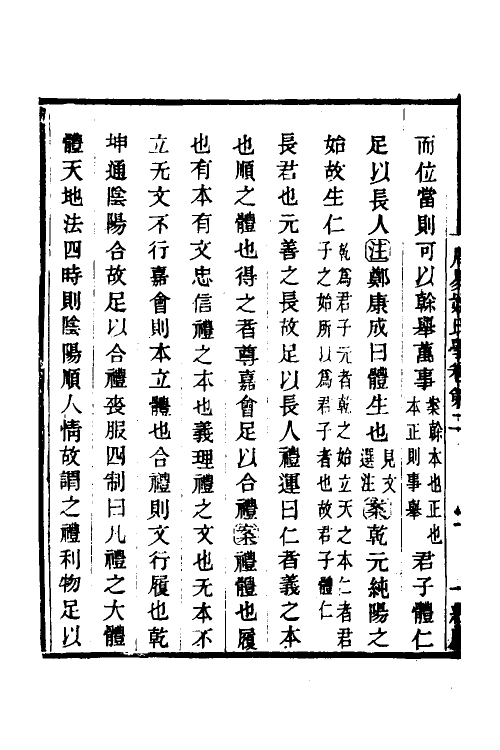 而位當則可以幹舉萬事案幹本也正也本正則事舉君子體仁
足以長人注鄭康成曰體生也見文選注案乾元純陽之
始故生仁乾爲君子元者乾之始立天之本仁者君子之始所以爲君子者也故君子體仁
長君也元善之長故足以長人禮運曰仁者義之本
也順之體也得之者尊嘉會足以合禮案禮體也履
也有本有文忠信禮之本也義理禮之文也无本不
立无文不行嘉會則本立體也合禮則文行履也乾
坤通陰陽合故足以合禮喪服四制曰凡禮之大體
體天地法四時則陰陽順人情故謂之禮利物足以
周易姚氏學卷第二